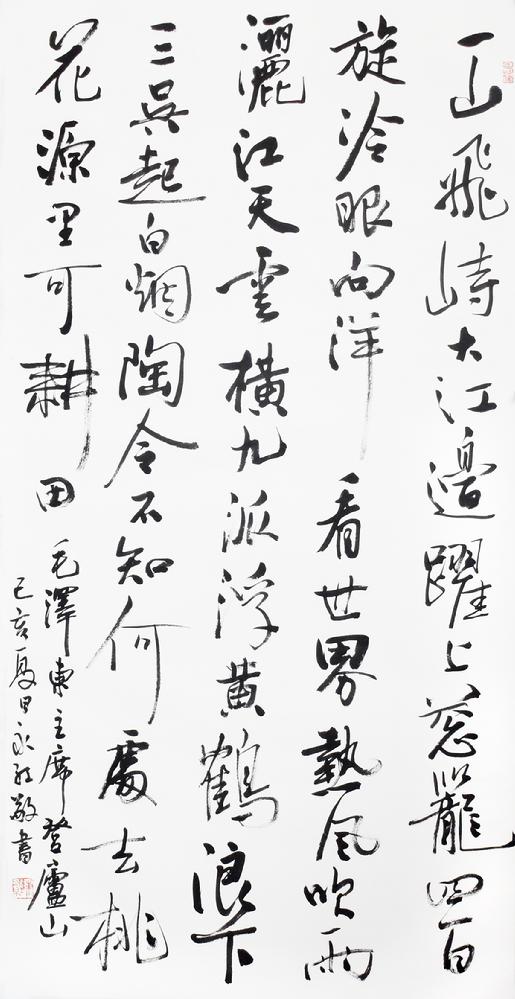 一山飛峙大江邊躍上葱蘢四百
旋冷眼向洋看世界熱風吹雨
灑江天雲橫九派浮黄鶴浪下
三吳起白烟陶令不知何處去桃
花源里可耕田 毛澤東主席登廬山
己亥夏日永敬書